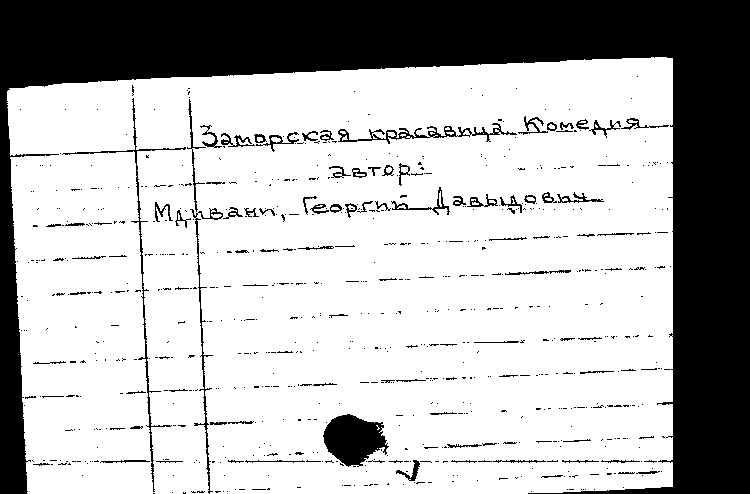 Заморская красавица Комедия.
автор:
Мдивани, Георгий Давыдович